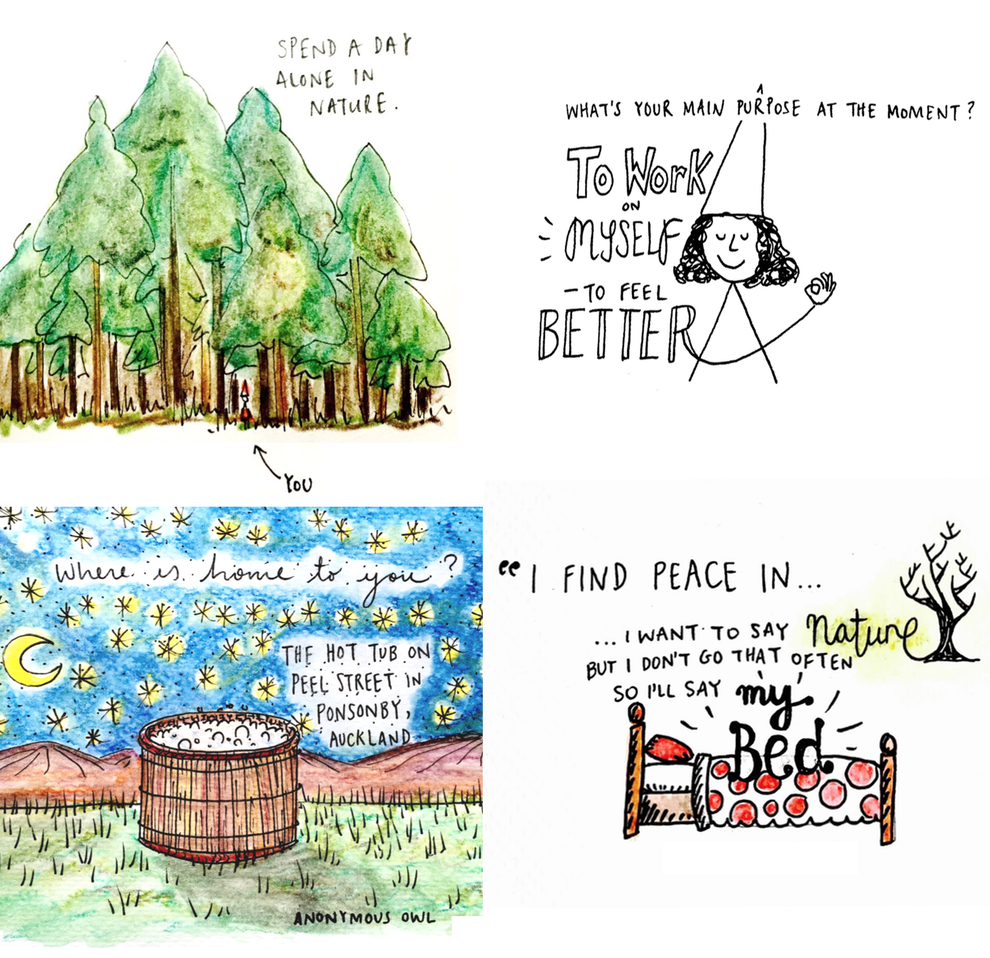 SPEND A DAY
ALONE IN
NATURE.
YOU
WHAT'S YOUR MAIN PURPOSE AT THE MOMENT?
To Work
ON
MYSELF
- TO FEEL
BETTER
Where is home to you?
THE HOT TUB ON
PEEL STREET IN
PONSONBY,
AUCKLAND
ANONYMOUS OWL
“I FIND PEACE IN...
...I WANT TO SAY nature
BUT I DON'T GO THAT OFTEN
SO I'LL SAY my
Bed